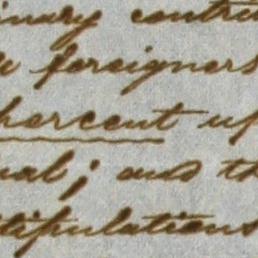 inary contri
foreigners
percent up
ual; and th
stipulations